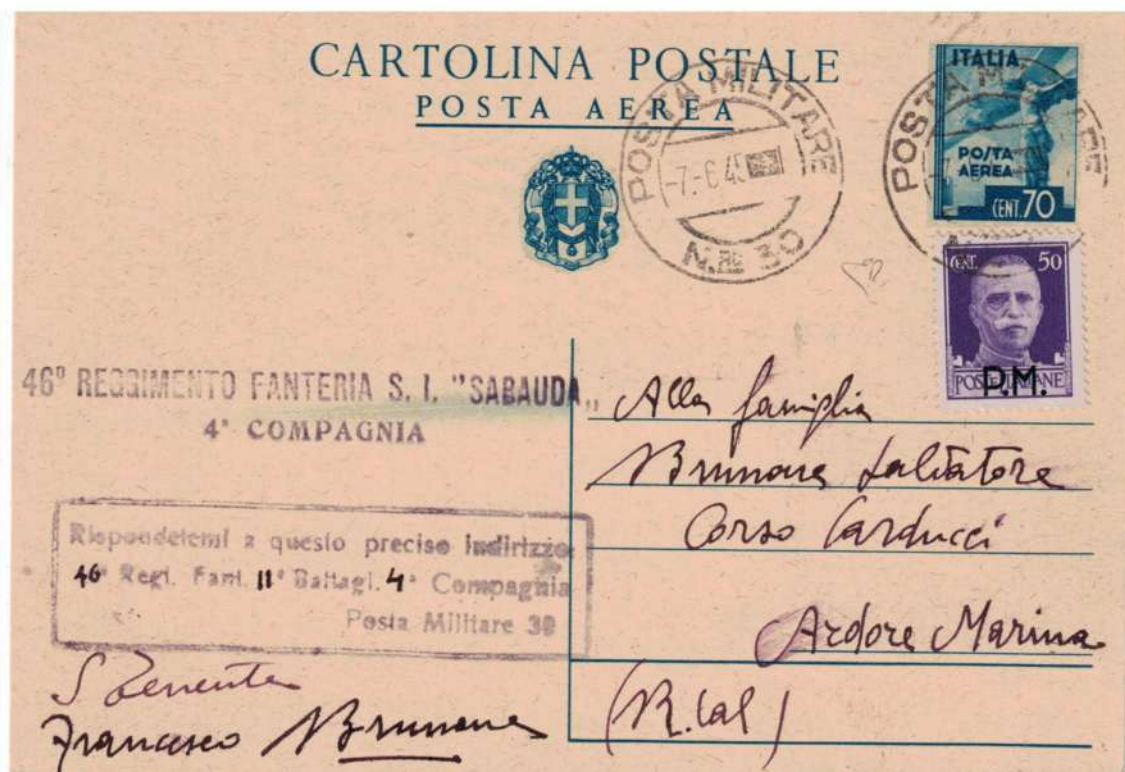 CARTOLINA POSTALE
POSTA AEREA
POSTA MILITARE
-7.-6.45
N. 30
ITALIA
POSTA
AEREA
CENT. 70
POSTA MILITARE
CENT. 50
POSTE ITALIANE
P.M.
46º REGGIMENTO FANTERIA S. I. "SABAUDA"
4ª COMPAGNIA
Rispondetemi a questo preciso indirizzo
46º Regt. Fant. IIº Battagl. 4ª Compagnia
Posta Militare 30
S Tenente
Francesco Brunone
Alla famiglia
Brunone Salvatore
Corso Carducci
Ardore Marina
(R. Cal)